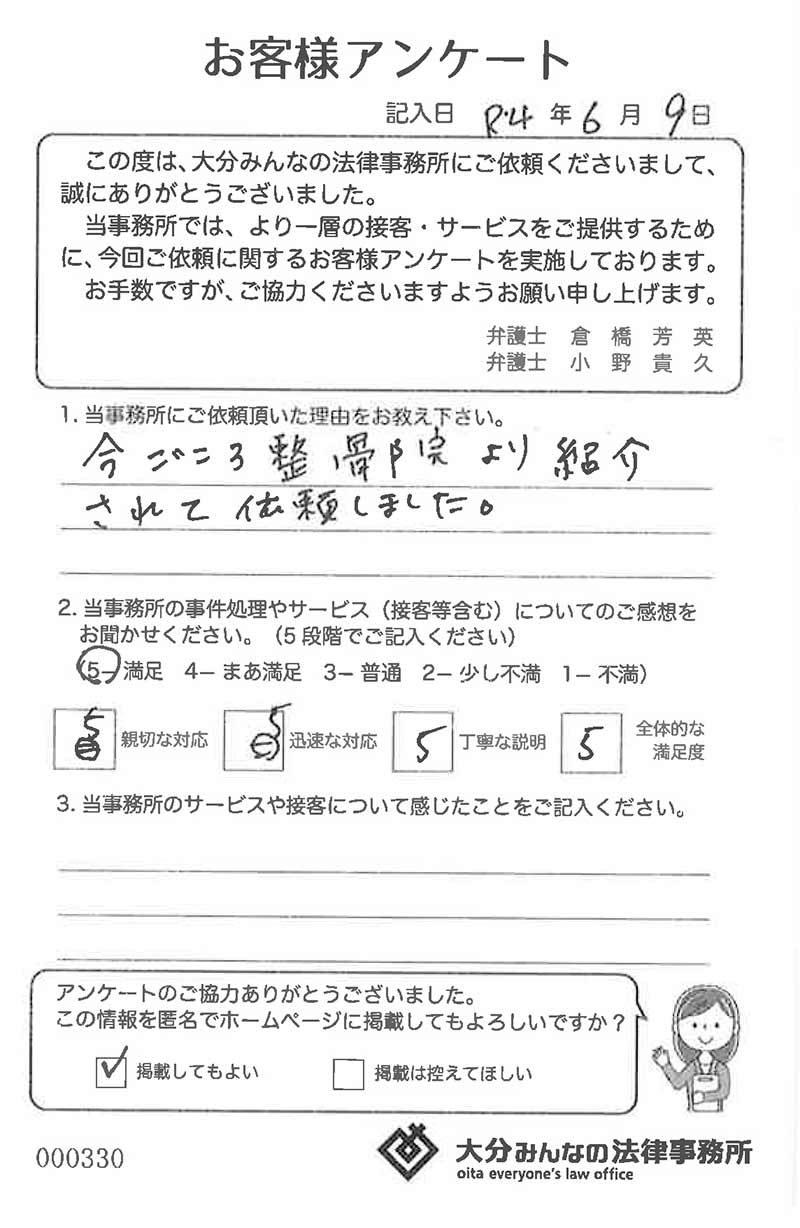 お客様アンケート
記入日 R.4 年 6 月 9 日
この度は、大分みんなの法律事務所にご依頼くださいまして、
誠にありがとうございました。
当事務所では、より一層の接客・サービスをご提供するため
に、今回ご依頼に関するお客様アンケートを実施しております。
お手数ですが、ご協力くださいますようお願い申し上げます。
弁護士 倉橋芳英
弁護士 小野貴久
1. 当事務所にご依頼頂いた理由をお教え下さい。
今ごころ整骨院より紹介
されて依頼しました。
2. 当事務所の事件処理やサービス（接客等含む）についてのご感想を
お聞かせください。（5段階でご記入ください）
（5− 満足 4− まあ満足 3− 普通 2− 少し不満 1− 不満）
5 親切な対応 5 迅速な対応 5 丁寧な説明 5 全体的な
満足度
3. 当事務所のサービスや接客について感じたことをご記入ください。
アンケートのご協力ありがとうございました。
この情報を匿名でホームページに掲載してもよろしいですか？
✓ 掲載してもよい 掲載は控えてほしい
000330
大分みんなの法律事務所
oita everyone's law office